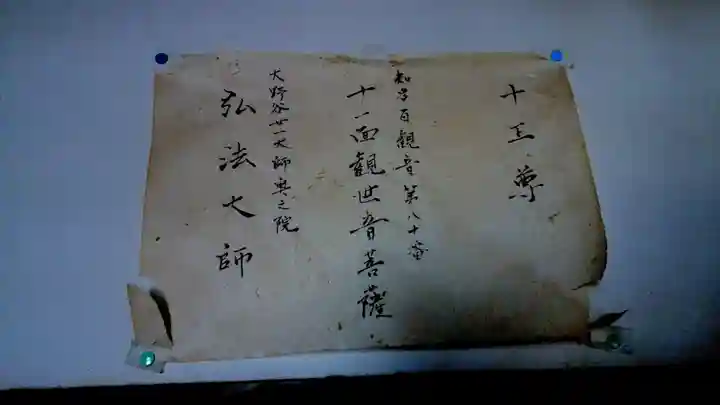 十王尊
知多百観音第八十番
十一面観世音菩薩
大野谷廿一大師奥之院
弘法大師